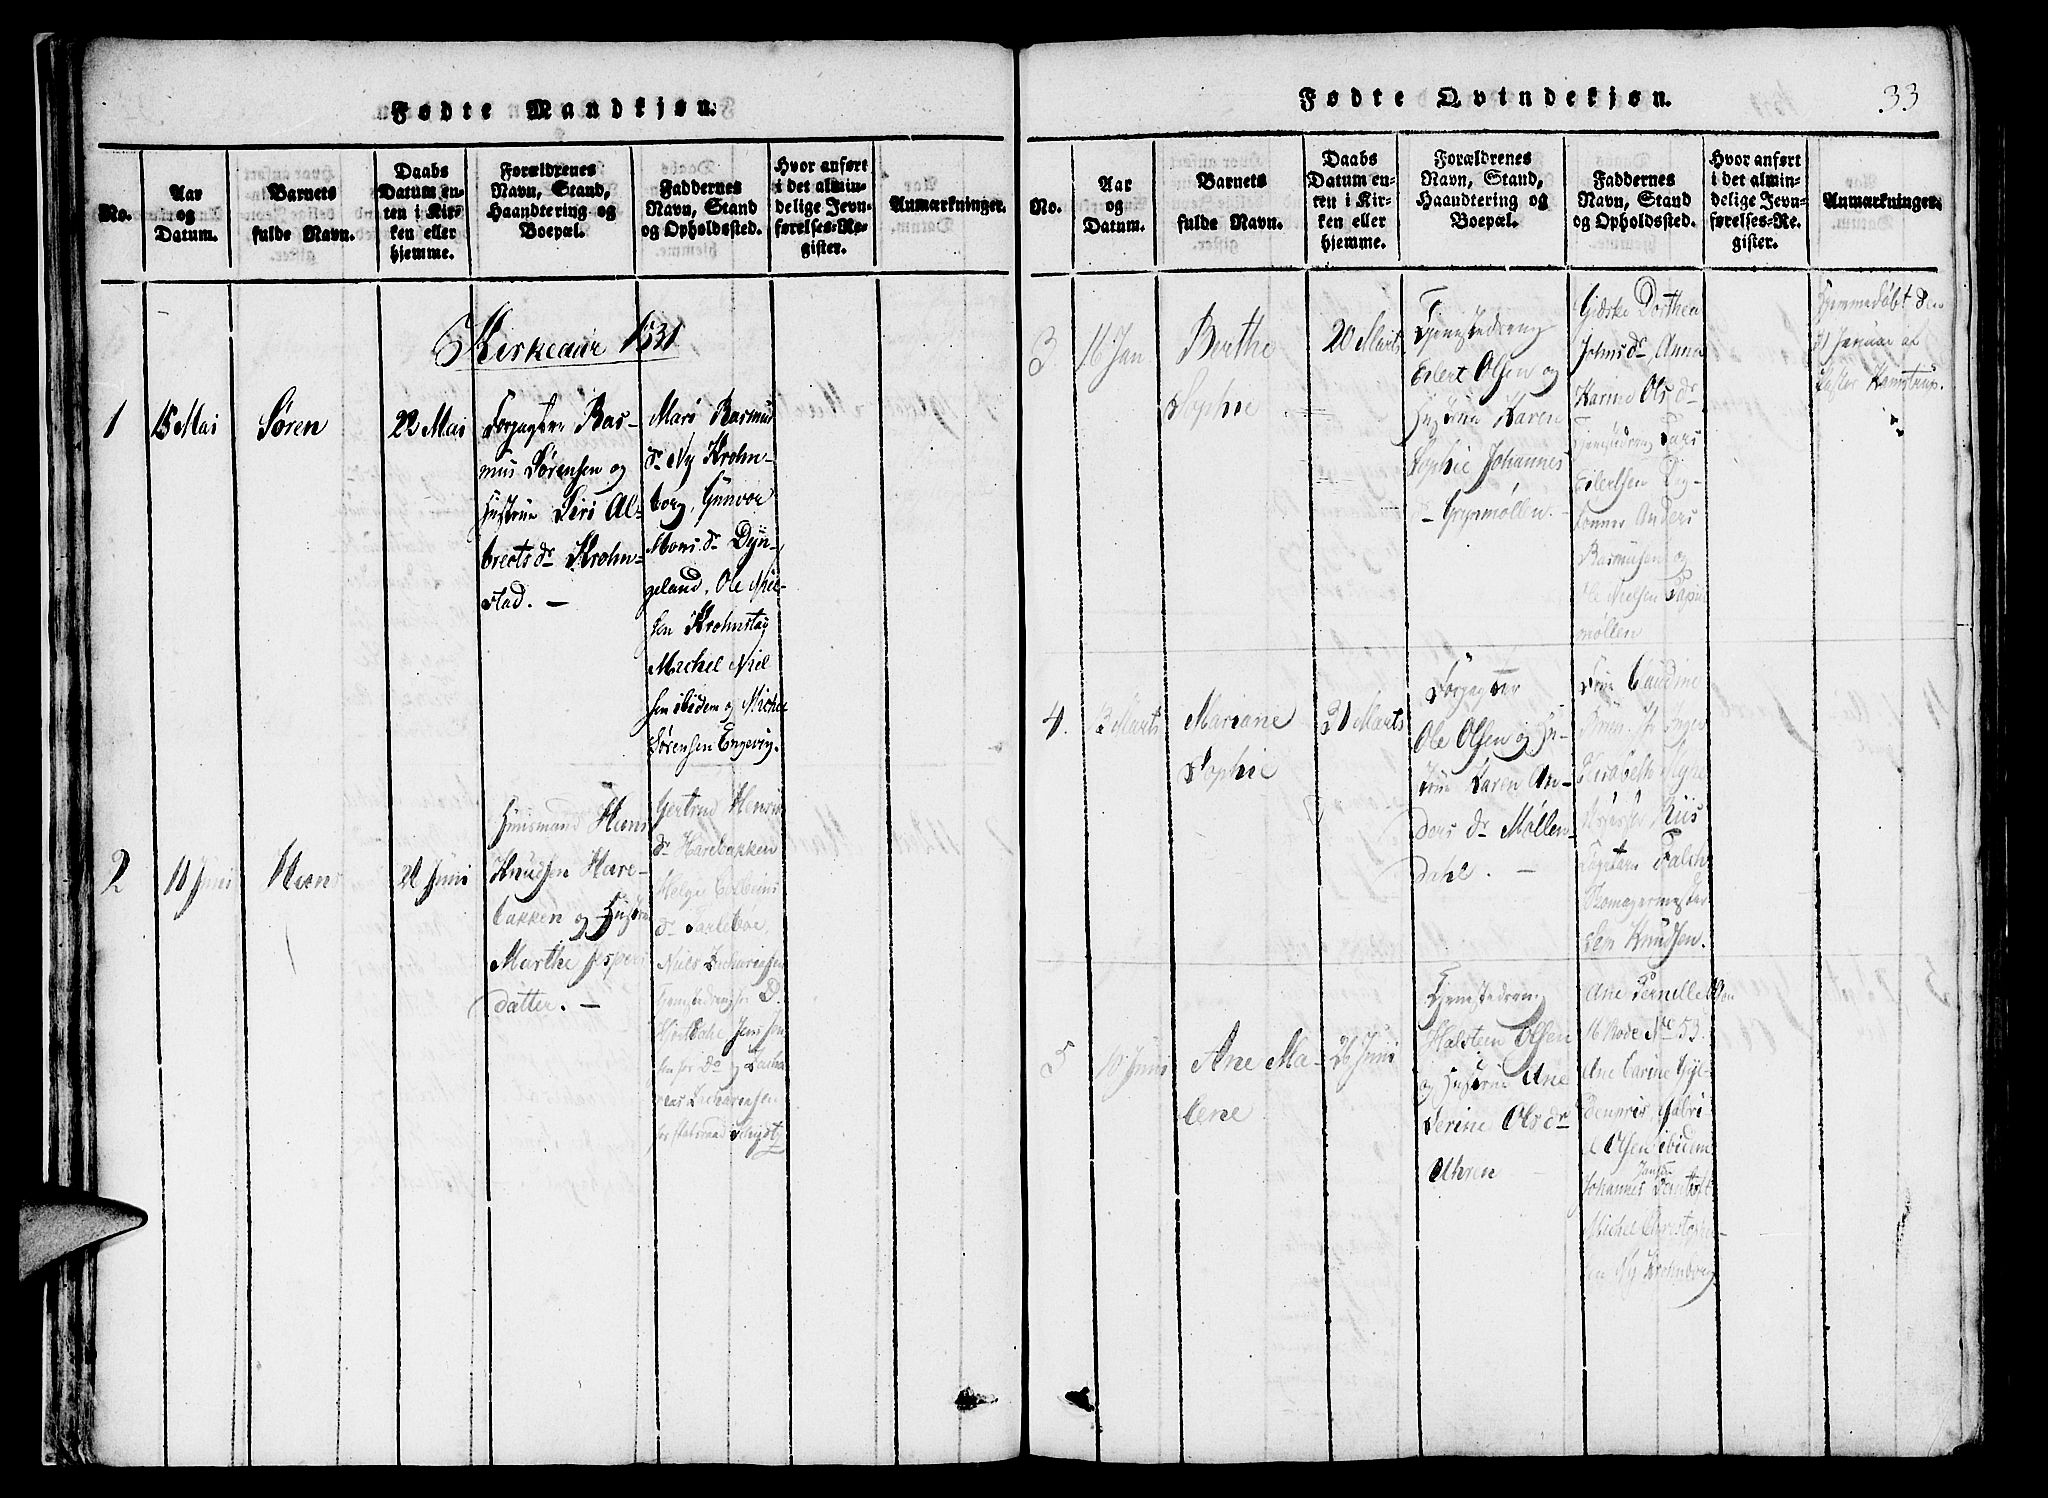 Fødte Mandkjøn.
No.
Aar
og
Datum.
Barnets
fulde Navn.
Daabs
Datum en-
ten i Kir-
ken eller
hjemme.
Forældrenes
Navn, Stand,
Haandtering og
Boepæl.
Faddernes
Navn, Stand
og Opholdssted.
Hvor anført
i det almin-
delige Jevn-
førelses-Re-
gister.
Anmærkninger.
Kirkeaar 1831
1
15 Mai
Søren
22 Mai
Forpagter Ras-
mus Sørensen og
Hustrue Siri Al-
brects dr Krohn-
stad. —
Mari Rasmus
dr Ny Krohn-
borg, Gunvor
Mons dr Dyn-
geland, Ole Niel-
sen Krohnstad
Michel Niel
sen ibidem og Michel
Sørensen Engevig.
2
10 Juni
Hans
Juni
Huusmand Hans
Knudsen Hare-
bakken og Hustrue
Marthe Jespers
datter. —
Gertrud Hans
dr Harebakken
Helge
dr
Niels Zachariasen
Tjenestedreng for D.
Jens Jen
sen for Do og Zacha
rias Zachariasen
for Statsraad
Fødte Qvindekjøn.
33
No.
Aar
og
Datum.
Barnets
fulde Navn.
Daabs
Datum en-
ten i Kir-
ken eller
hjemme.
Forældrenes
Navn, Stand,
Haandtering og
Boepæl.
Faddernes
Navn, Stand
og Opholdssted.
Hvor anført
i det almin-
delige Jevn-
førelses-Re-
gister.
Anmærkninger.
3
16 Jan
Berthe
Sophie
20 Marts
Tjenestedreng
Eilert Olsen og
Hustrue Karen
Sophie Johannes
dr Grynmøllen. —
Gidske Dorthea
Johns dr, Anna
Karine Ols dr
Tjenestedreng Lars
Eilertsen
Anders
Rasmusen og
Ole Nielsen
møllen
Hjemmedøbt den
21 Januar af
Pastor Kamstrup.
4.
Marts
Mariane
Sophie
31 Marts
Forpagter
Ole Olsen og Hu-
strue Karen An-
ders dr Møllen-
dahl. —
Frue Caudine
Inger
Elisabeth Myre
Riis
Capitain Falch
Sem Knudsen.
5
10 Juni
Ane Ma-
lene
26 Juni
Tjenestedreng
Halsteen Olsen
og Hustrue Ane
Serine Ols dr
Uhren —
Ane Pernille
16 Rode No 53.
Ane Carine Gyl-
denpris, Gabri-
el Olsen ibidem
Johannes
Michel Christopher-
sen Ny Krohnborg